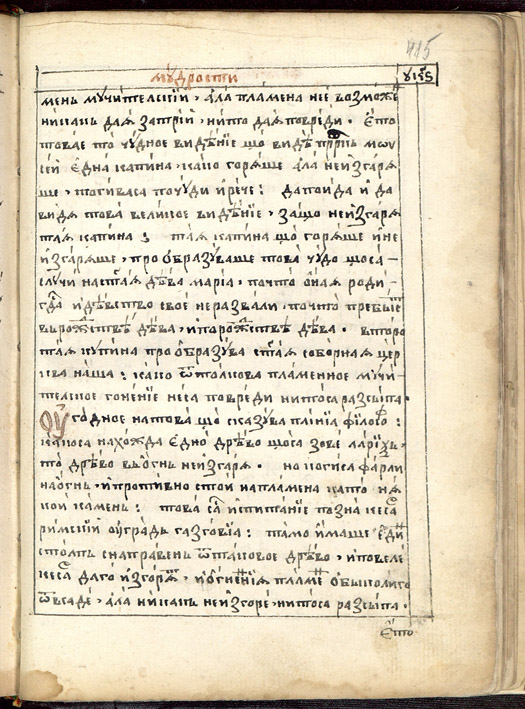 415
мꙋдрости
мень мꙋчителскїй, ала пламена нее возможе
никакъ даѧ запрїй, нито даѧ повреди. Єто
товае то чꙋдное видѣнїе що видѣ прⷪ҇ркъ моѵ
сей една капина, како горѧше ала неизгарѧ
ше, тогиваса почꙋди и рече: дапоида и да
видѧ това великое видѣнїе, защо неизгарѧ
таѧ капина; таѧ капина що горѧше и не
изгарѧше, прообразꙋваше това чꙋдо щоса
слꙋчи наст҃аѧ дѣва марїа, почто онаѧ роди
и дѣвство свое неразвали, почто пребысть
вырожⷣствѣ дѣва, и порожⷣствѣ дѣва. второ
таѧ кꙋпина прообразꙋва ст҃аѧ соборнаѧ цер
ква наша: како ѿтолкова пламенное мꙋчи
телское гоненїе неса повреди нитоса разсыпа.
Оугодное натова що сказꙋва плинїа філосоⷴ:
какоса нахожда едно дрѣво щоса зове ларїѯъ,
то дрѣво вьогнь неизгарѧ. но когиса фарли
наогнь, и противно стои напламена като нѧ
кой камень: това съ испитанїе позна кесаⷬ
римскїй ꙋградъ газговїа: тамо имаше един
столпъ снаправень ѿтаковое дрѣво, и повеле
кесаⷬ даго изгорѧтъ, и огненїѧ пламе обыколиго
ѿвсаде, ала никакъ неизгоре, нитоса разсыпа.
Єто